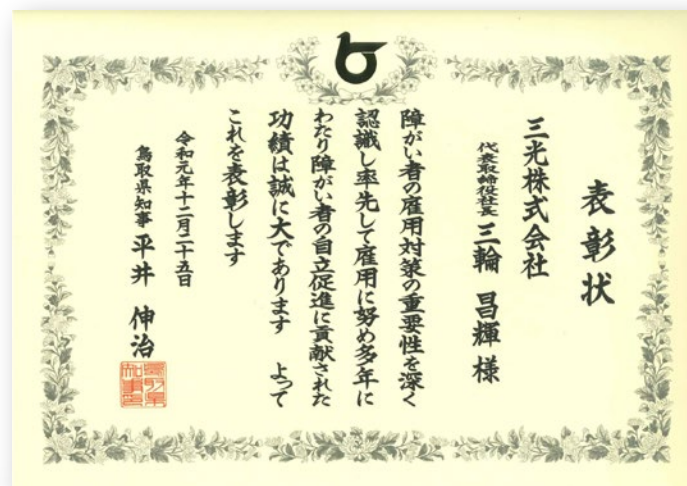 表彰状
三光株式会社
代表取締役社長 三輪 昌輝 様
障がい者の雇用対策の重要性を深く
認識し率先して雇用に努め多年に
わたり障がい者の自立促進に貢献された
功績は誠に大であります よって
これを表彰します
令和元年十二月二十五日
鳥取県知事 平井 伸治
鳥取県知事印